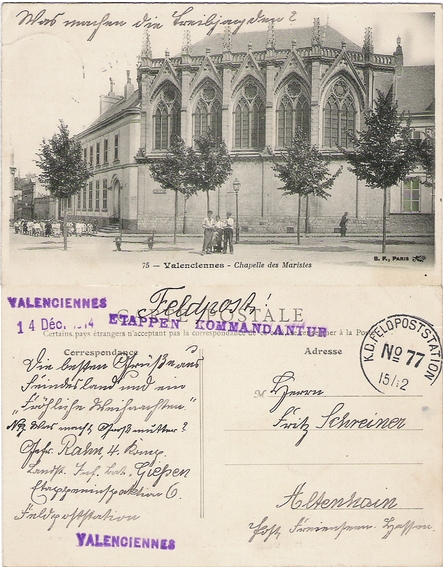 Was machen die Treibjagden?
75 — Valenciennes - Chapelle des Maristes
B. F., PARIS
Feldpost!
VALENCIENNES
14 Déc. 1914
ETAPPEN KOMMANDANTUR
POSTALE
Certains pays étrangers n'acceptent pas la correspondance de ce côté, se renseigner à la Poste
Correspondance
Adresse
K.D. FELDPOSTSTATION
No 77
15/12
Die besten Grüße aus
Feindesland und ein
"Fröhliche Weihnachten"
Was macht Großmutter?
Gefr. Rahn, 4. Komp.
Landst. Inf. Bat. Gießen
Etappeninspektion 6.
Feldpoststation
VALENCIENNES
M Herrn
Fritz Schreiner
Altenhain
Post Freienseen. Hessen.